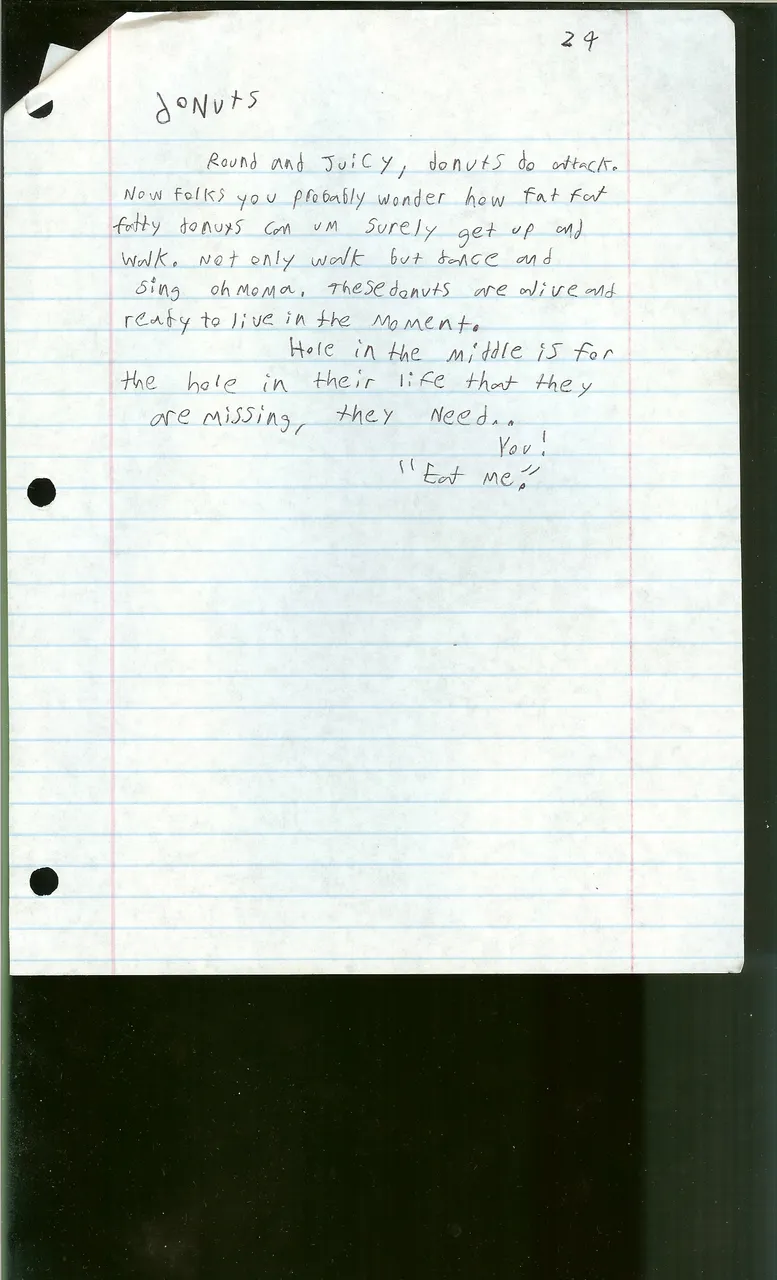 24
donuts
Round and Juicy, donuts do attack.
Now folks you probably wonder how fat fat
fatty donuts can um surely get up and
walk. Not only walk but dance and
sing oh moma. These donuts are alive and
ready to live in the moment.
Hole in the middle is for
the hole in their life that they
are missing, they need..
You!
"Eat me."